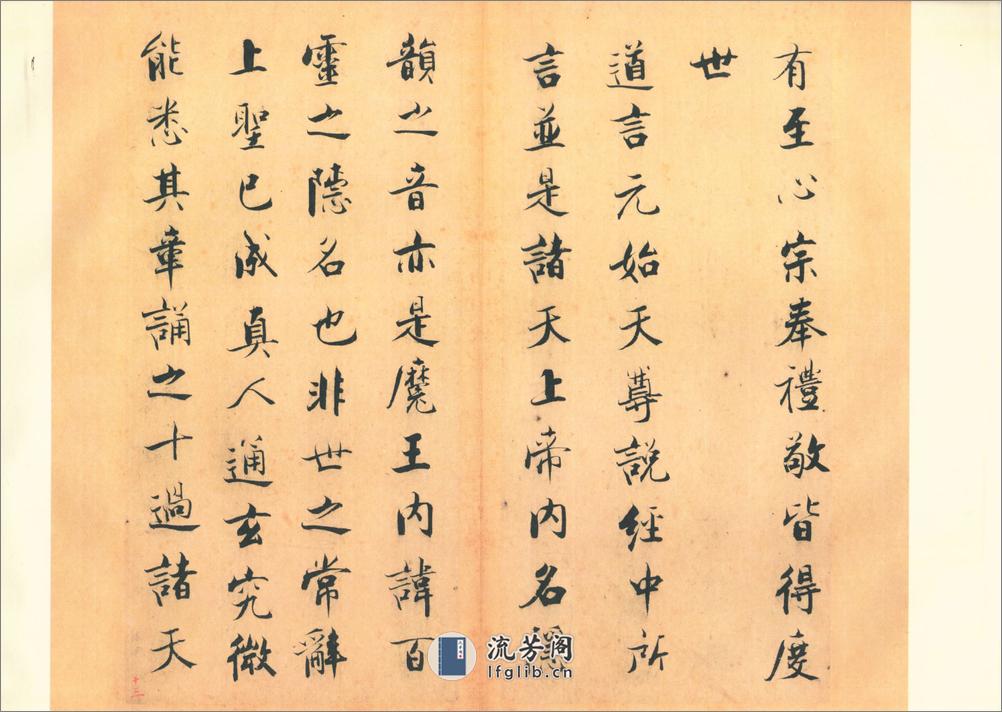 有至心宗奉禮敬皆得度
世
道言元始天尊說經中所
言並是諸天上帝內名隱
韻之音亦是魔王內諱百
靈之隱名也非世之常辭
上聖已成真人通玄究微
能悉其章誦之十過諸天
十三
流芳阁
lfglib.cn